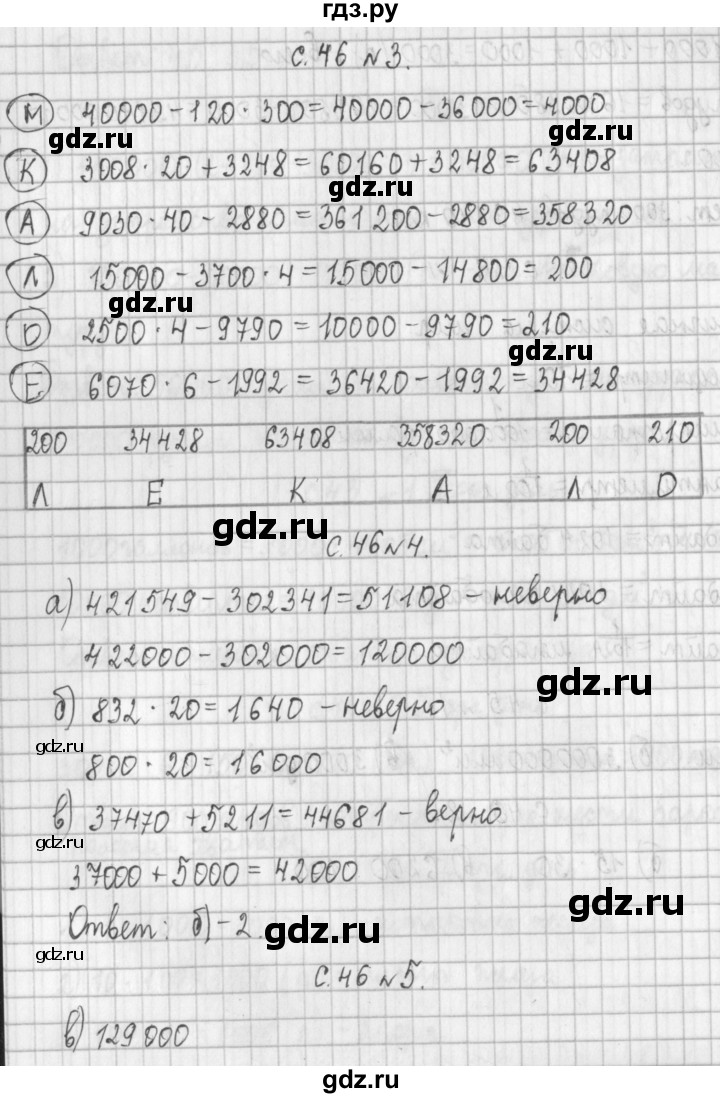 гдз.ру
с. 46 №3.
М 40000-120·300=40000-36000=4000
gdz.ru gdz.ru
К 3008·20+3248=60160+3248=63408
gdz.ru
А 9030·40-2880=361200-2880=358320
Л 15000-3700·4=15000-14800=200
gdz.ru
О 2500·4-9790=10000-9790=210
gdz.ru
Е 6070·6-1992=36420-1992=34428
200 34428 63408 358320 200 210
Л Е К А Л О
gdz.ru
с. 46 №4.
а) 421549-302341=51108 - неверно
422000-302000=120000
gdz.ru
б) 832·20=1640 - неверно
gdz.ru
800·20=16000
в) 37470+5211=44681 - верно
gdz.ru
37000+5000=42000
gdz.ru
Ответ: б)-2
gdz.ru
с. 46 №5.
в) 129000
gdz.ru
gdz.ru